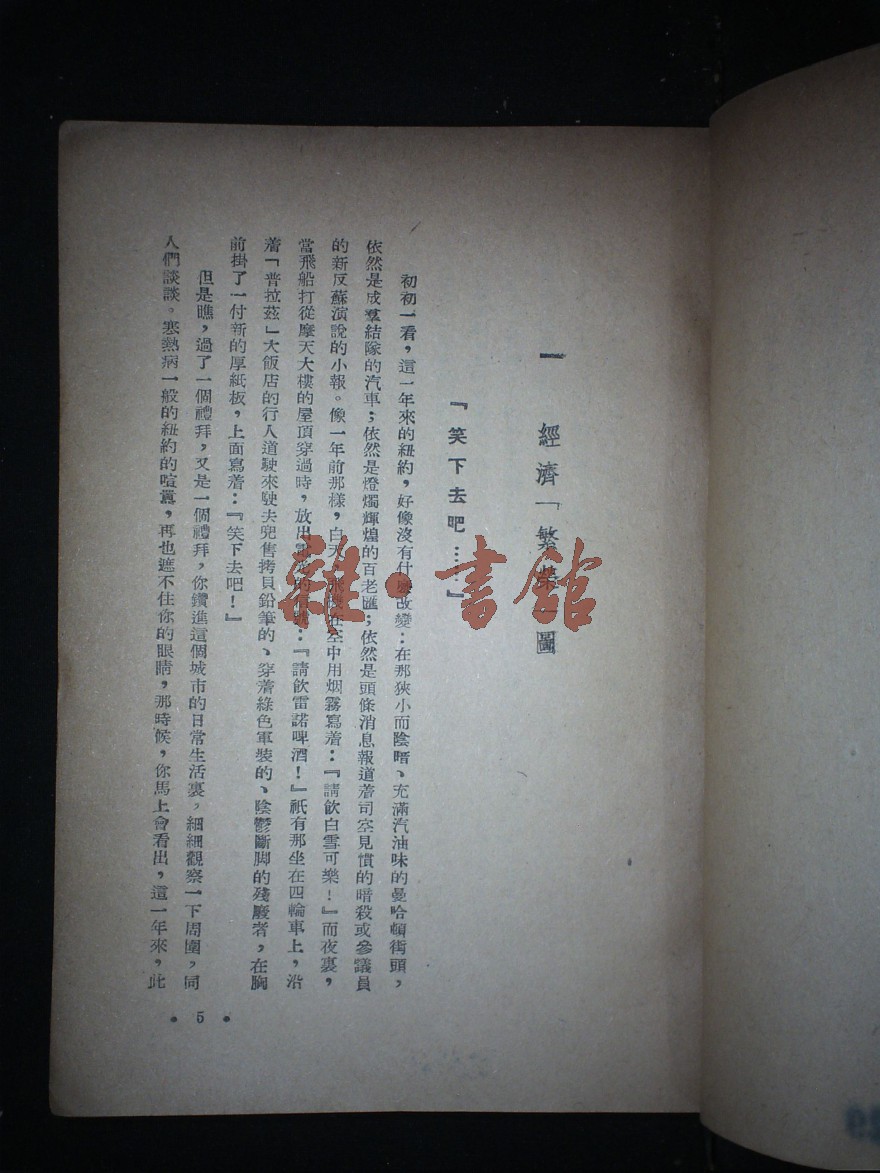 一　經濟「繁榮」圖
『笑下去吧……』
初初一看，這一年來的紐約，好像沒有什麼改變：在那狹小而陰暗、充滿汽油味的曼哈頓街頭，
依然是成羣結隊的汽車；依然是燈燭輝煌的百老匯；依然是頭條消息報道着司空見慣的暗殺或參議員
的新反蘇演說的小報。像一年前那樣，白天，飛機在空中用烟霧寫着：『請飲白雪可樂！』而夜裏，
當飛船打從摩天大樓的屋頂穿過時，放出 的 ：『請飲雷諾啤酒！』祇有那坐在四輪車上，沿
着「普拉茲」大飯店的行人道駛來駛去兜售拷貝鉛筆的、穿着綠色軍裝的、陰鬱斷脚的殘廢者，在胸
前掛了一付新的厚紙板，上面寫着：『笑下去吧！』
但是瞧，過了一個禮拜，又是一個禮拜，你鑽進這個城市的日常生活裏，細細觀察一下周圍，同
人們談談。寒熱病一般的紐約的喧囂，再也遮不住你的眼睛，那時候，你馬上會看出，這一年來，此
• 5 •
雜·書館